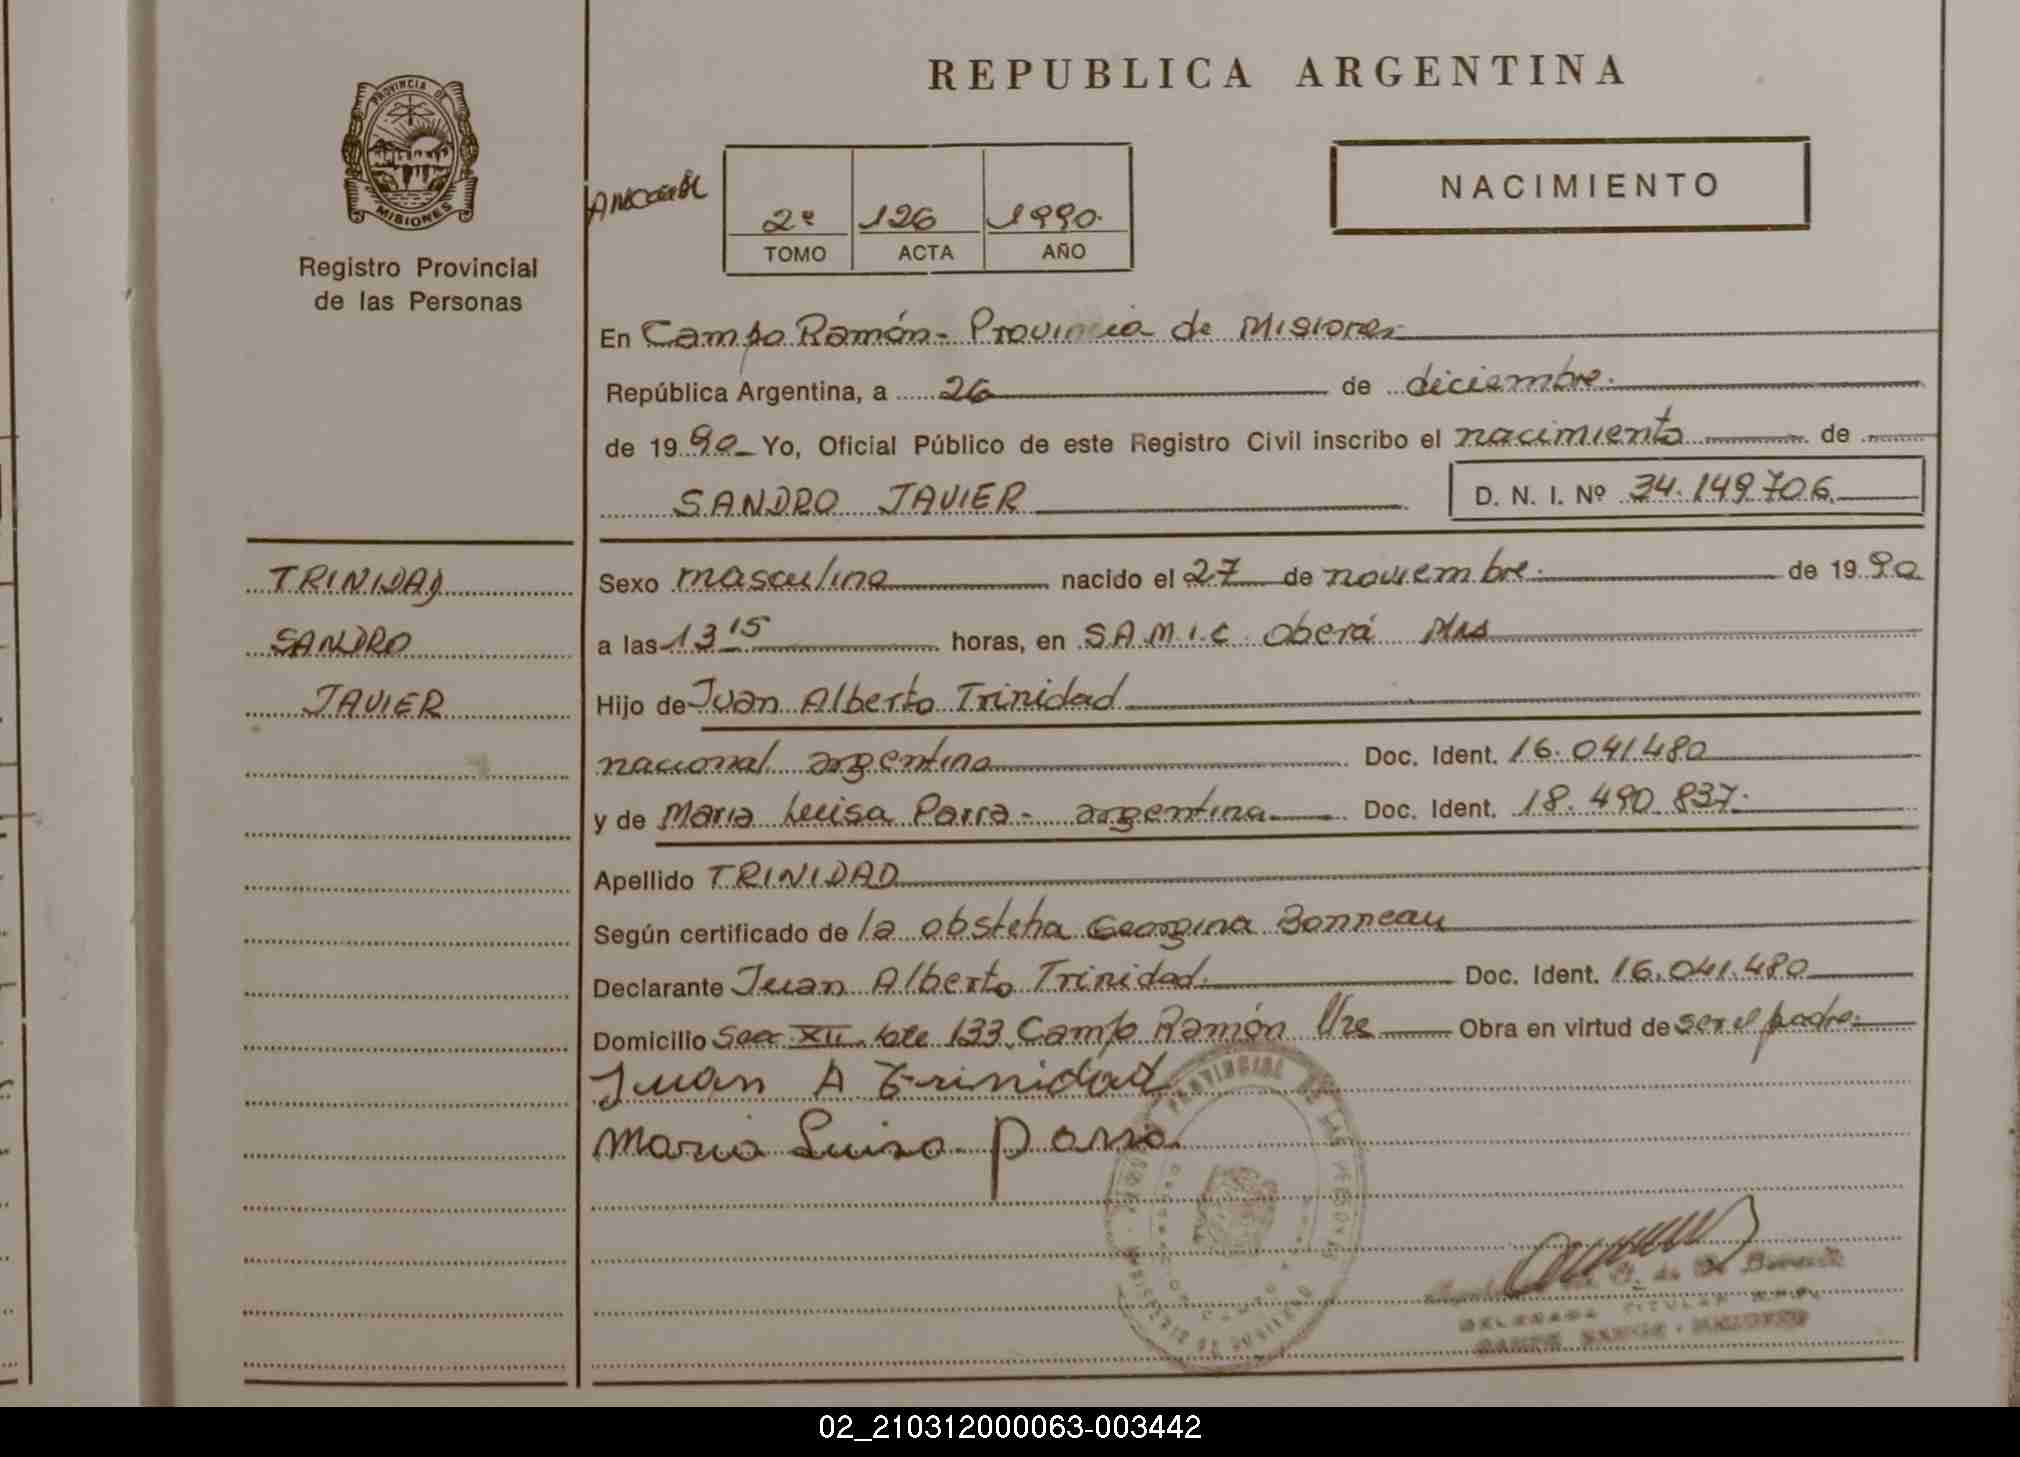 REPUBLICA ARGENTINA
PROVINCIA DE
MISIONES
Registro Provincial
de las Personas
2º 126 1990
TOMO ACTA AÑO
NACIMIENTO
En Campo Ramón - Provincia de Misiones
República Argentina, a 26 de diciembre
de 1990 Yo, Oficial Público de este Registro Civil inscribo el nacimiento de
SANDRO JAVIER D. N. I. Nº 34.149.706
TRINIDAD
SANDRO
JAVIER
Sexo masculino nacido el 27 de noviembre de 1990
a las 13 15 horas, en S.A.M.I.C. Oberá Mns
Hijo de Juan Alberto Trinidad
nacional argentino Doc. Ident. 16.041.480
y de Maria Luisa Parra - argentina Doc. Ident. 18.490.837
Apellido TRINIDAD
Según certificado de la obstetra Georgina Bonneau
Declarante Juan Alberto Trinidad Doc. Ident. 16.041.480
Domicilio Sec XII lote 133 Campo Ramón Obra en virtud de ser el padre
Juan A Trinidad
Maria Luisa Parra
PROVINCIAL DE LAS PERSONAS
DELEGADA TITULAR
02_210312000063-003442